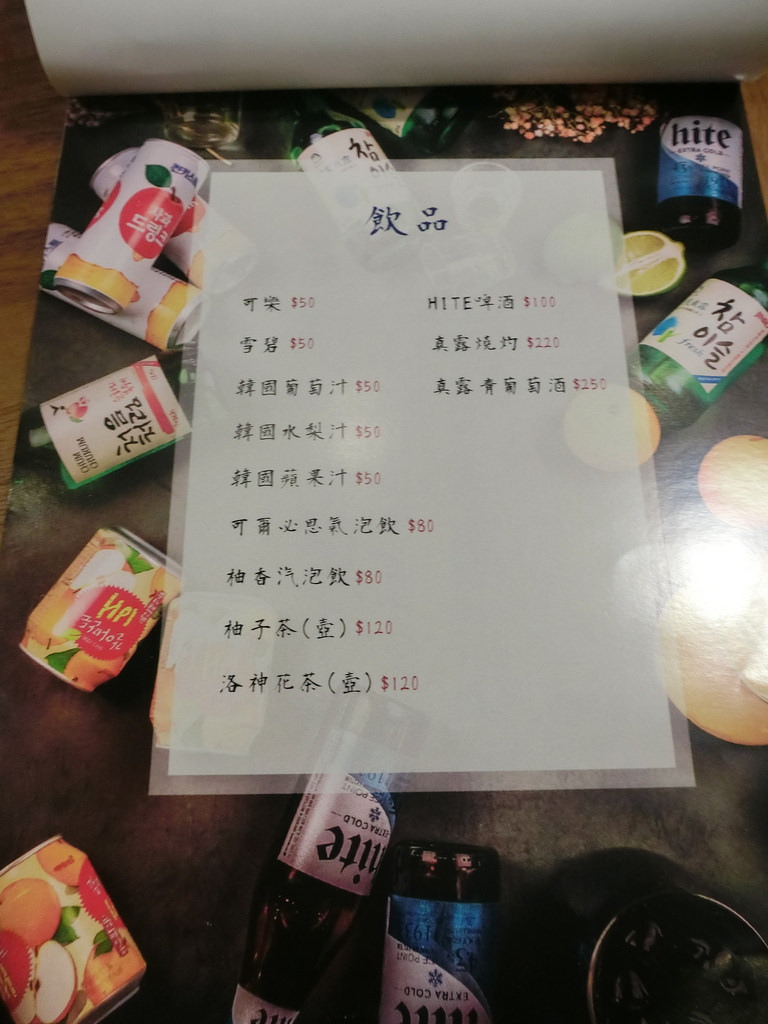 飲品
可樂 $50
雪碧 $50
韓國葡萄汁 $50
韓國水梨汁 $50
韓國蘋果汁 $50
可爾必思氣泡飲 $80
柚香汽泡飲 $80
柚子茶(壺) $120
洛神花茶(壺) $120
HITE啤酒 $100
真露燒灼 $220
真露青葡萄酒 $250
hite
EXTRA COLD
참
이슬
fresh
참
이슬
사과
드링크
CHUM
CHURUM
hite
EXTRA COLD
EXTRA COLD